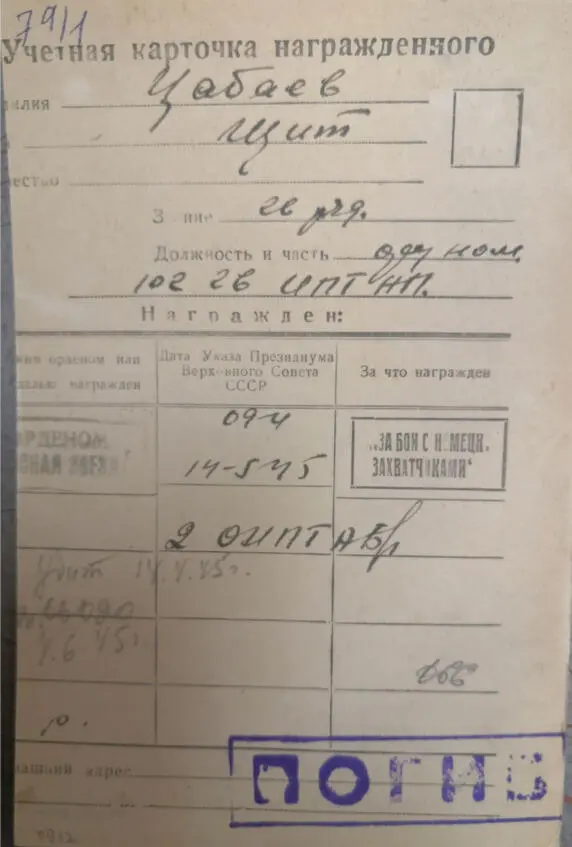 79/1
Учетная карточка награжденного
илия Цабаев
Щит
ество
Звание гв ряд.
Должность и часть оруд ном.
102 гв ИПТАП.
Награжден:
ким орденом или
едалью награжден
Дата Указа Президиума
Верховного Совета
СССР
За что награжден
ОРДЕНОМ
СНАЯ ЗВЕЗДА"
09-н
14-5-45
„ЗА БОИ С НЕМЕЦК.
ЗАХВАТЧИКАМИ"
2 ОИПТАБр
Убит 14.4.45г.
6 45г
р.
машний адрес
ПОГИБ